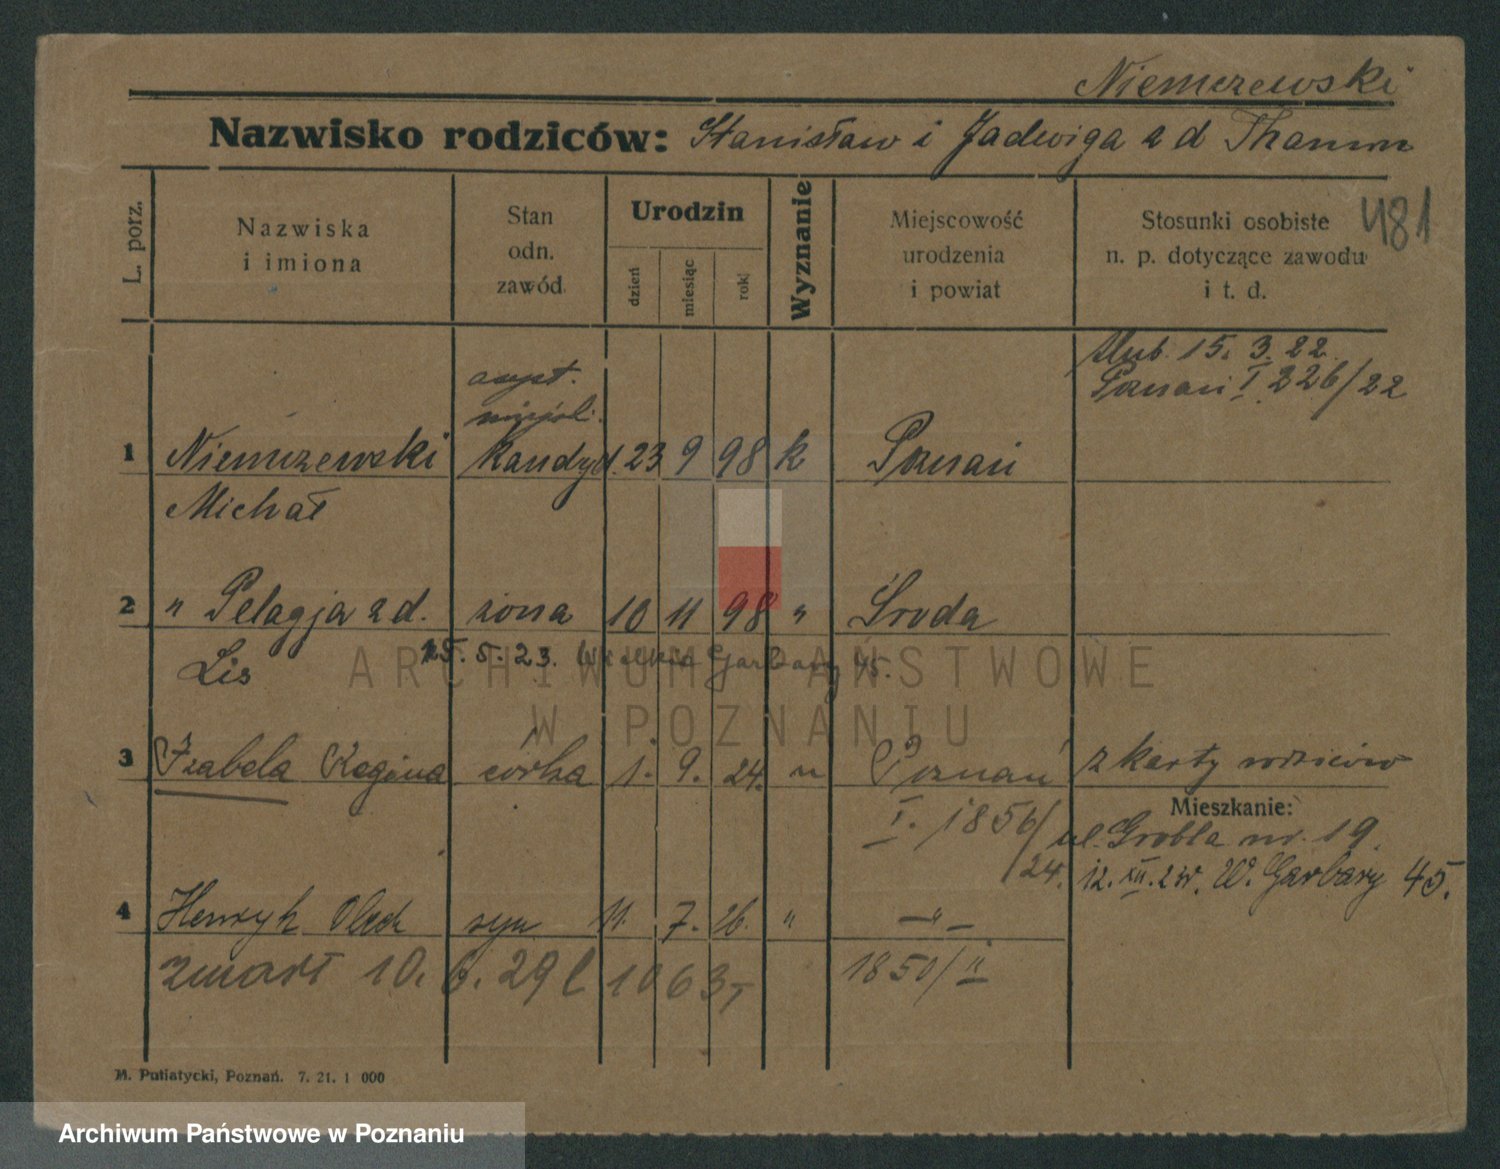 Niemczewski
Nazwisko rodziców: Stanisław i Jadwiga z d Thamm
481
L. porz.
Nazwiska
i imiona
Stan
odn.
zawód
Urodzin
dzień
miesiąc
rok
Wyznanie
Miejscowość
urodzenia
i powiat
Stosunki osobiste
n. p. dotyczące zawodu
i t. d.
ślub. 15. 3. 22.
Poznań I 226/22
asyst.
miejsk.
1 Niemczewski kandyd. 23 9 98 k Poznań
Michał
2 " Pelagja z d. żona 10 11 98 " Środa
Lis
25. 5. 23. Wielkie Garbary 45.
3 Izabela Regina córka 1. 9. 24. " Poznań z karty rodziców
I. 1856/
24.
Mieszkanie:
ul. Grobla nr. 19.
12. XII. 24r. W. Garbary 45.
4 Henryk syn 11. 7. 26. " —"—
zmarł 10. 6. 29 1063
1850/II
M. Putiatycki, Poznań. 7. 21. 1 000
ARCHIWUM PAŃSTWOWE
W POZNANIU
Archiwum Państwowe w Poznaniu